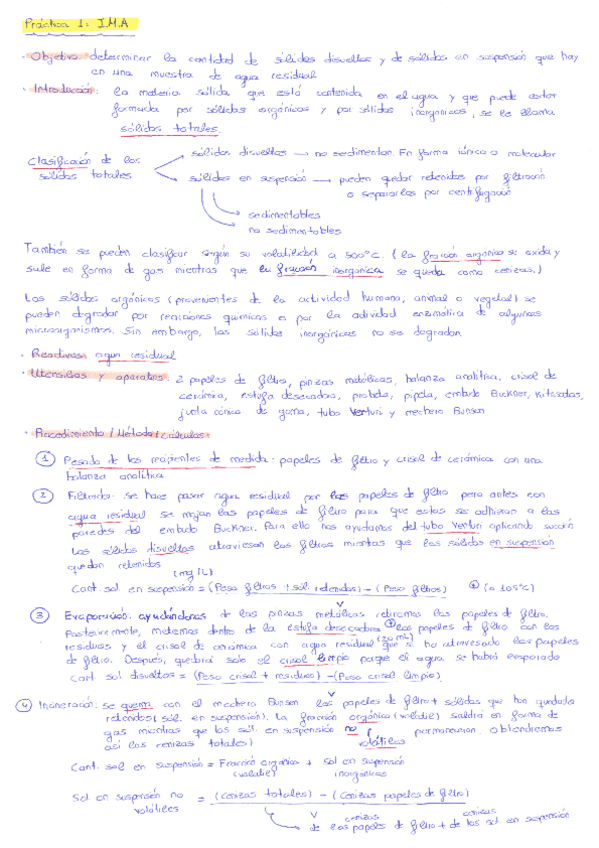 Práctica 1: I.M.A
· Objetivo: determinar la cantidad de sólidos disueltos y de sólidos en suspensión que hay
en una muestra de agua residual
· Introducción: la materia sólida que está contenida en el agua y que puede estar
formada por sólidos orgánicos y por sólidos inorgánicos, se le llama
sólidos totales.
Clasificación de los sólidos totales
sólidos disueltos → no sedimentan. En forma iónica o molecular
sólidos en suspensión → pueden quedar retenidos por filtración
o separarlos por centrifugación
sedimentables
no sedimentables
También se pueden clasificar según su volatilidad a 500°C. (la fracción orgánica se oxida y
sale en forma de gas mientras que la fracción inorgánica se queda como cenizas.)
Los sólidos orgánicos (provenientes de la actividad humana, animal o vegetal) se
pueden degradar por reacciones químicas o por la actividad enzimática de algunos
microorganismos. Sin embargo, los sólidos inorgánicos no se degradan.
· Reactivos: agua residual
· Utensilios y aparatos: 2 papeles de filtro, pinzas metálicas, balanza analítica, crisol de
cerámica, estufa desecadora, probeta, pipeta, embudo Buckner, kitasatos,
junta cónica de goma, tubo Venturi y mechero Bunsen
· Procedimiento / Método / cálculos:
1 Pesado de los recipientes de medida: papeles de filtro y crisol de cerámica con una
balanza analítica
2 Filtrado: se hace pasar agua residual por los papeles de filtro pero antes con
agua residual se mojan los papeles de filtro para que estos se adhieran a las
paredes del embudo Buckner. Para ello nos ayudamos del tubo Venturi aplicando succión
Los sólidos disueltos atraviesan los filtros mientras que los sólidos en suspensión
quedan retenidos
(mg/L)
Cant. sol. en suspensión = (Peso filtros + sol. retenidos) - (Peso filtros)
V
(a 105°C)
3 Evaporación: ayudándonos de las pinzas metálicas retiramos los papeles de filtro.
Posteriormente, metemos dentro de la estufa desecadora los papeles de filtro con los
residuos y el crisol de cerámica con agua residual que sí ha atravesado los papeles
(20 mL)
de filtro. Después, quedará solo el crisol limpio porque el agua se habrá evaporado
Cant sol disueltos = (Peso crisol + residuos) - (Peso crisol limpio)
V
4 Incineración: se quema con el mechero Bunsen los papeles de filtro + sólidos que han quedado
retenidos (sól. en suspensión). La fracción orgánica (volátil) saldrá en forma de
gas mientras que los sól. en suspensión no volátiles permanecerán. Obtendremos
así las cenizas totales)
Cant. sol en suspensión = Fracción orgánica + Sol en suspensión
(volátil) inorgánicos
Sol en suspensión no volátiles = (cenizas totales) - (cenizas papeles de filtro)
V
cenizas cenizas
de los papeles de filtro + de los sol en suspensión